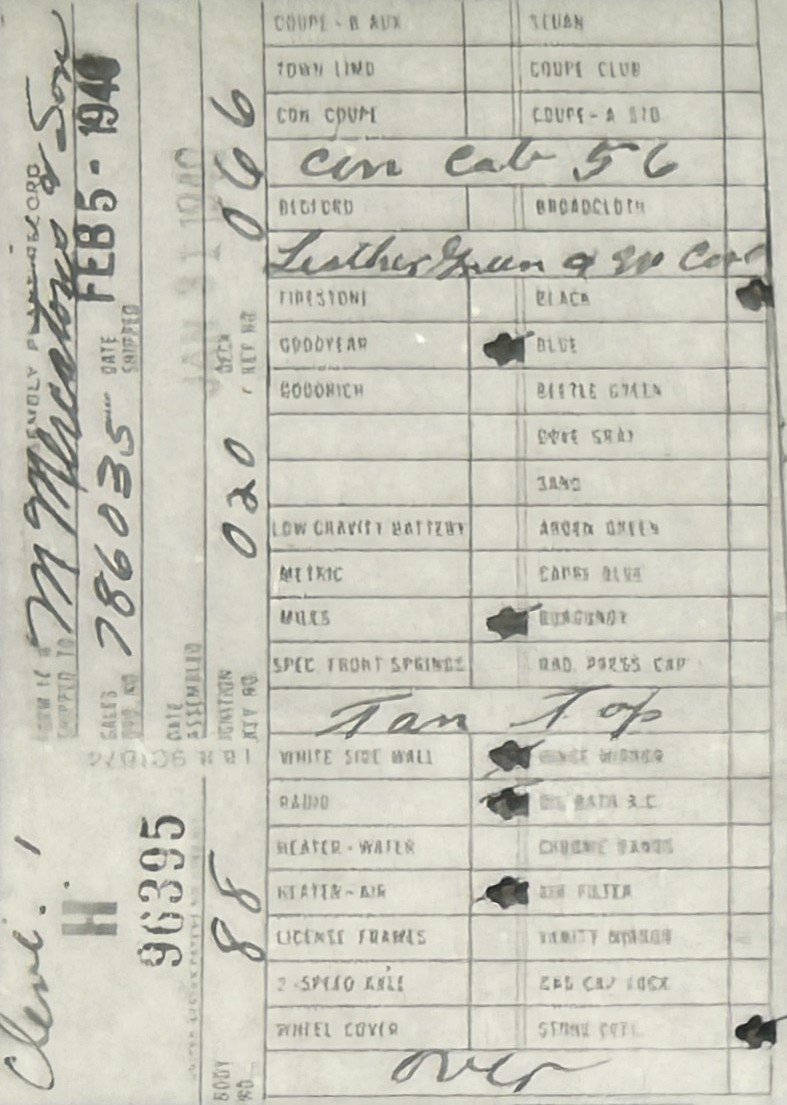 COUPE - B AUX SEDAN
TOWN LIMO COUPE CLUB
CON COUPE COUPE - A STD
Con Cab 56
BEDFORD BROADCLOTH
Leather Green
FIRESTONE BLACK
GOODYEAR BLUE
GOODRICH BEETLE GREEN
DOVE GRAY
SAND
LOW GRAVITY BATTERY ARDEN GREEN
METRIC BLUE
MILES BURGUNDY
SPEC FRONT SPRINGS RAD PRESS CAP
Tan Top
WHITE SIDE WALL HINGE MIRROR
RADIO OIL BATH A.C.
HEATER - WATER CHROME BANDS
HEATER - AIR AIR FILTER
LICENSE FRAMES VANITY MIRROR
2 - SPEED AXLE GAS CAP LOCK
WHEEL COVER STONE
over
ASSEMBLY PLANT RECORD
SHIPPED TO M & Son
SALES ORD. NO. 786035 DATE SHIPPED FEB 5 - 1940
DATE ASSEMBLED JAN 31 1940
IGNITION KEY NO. 020 DECK KEY NO. 066
Clevl. 1
H
96395
BODY NO. 88